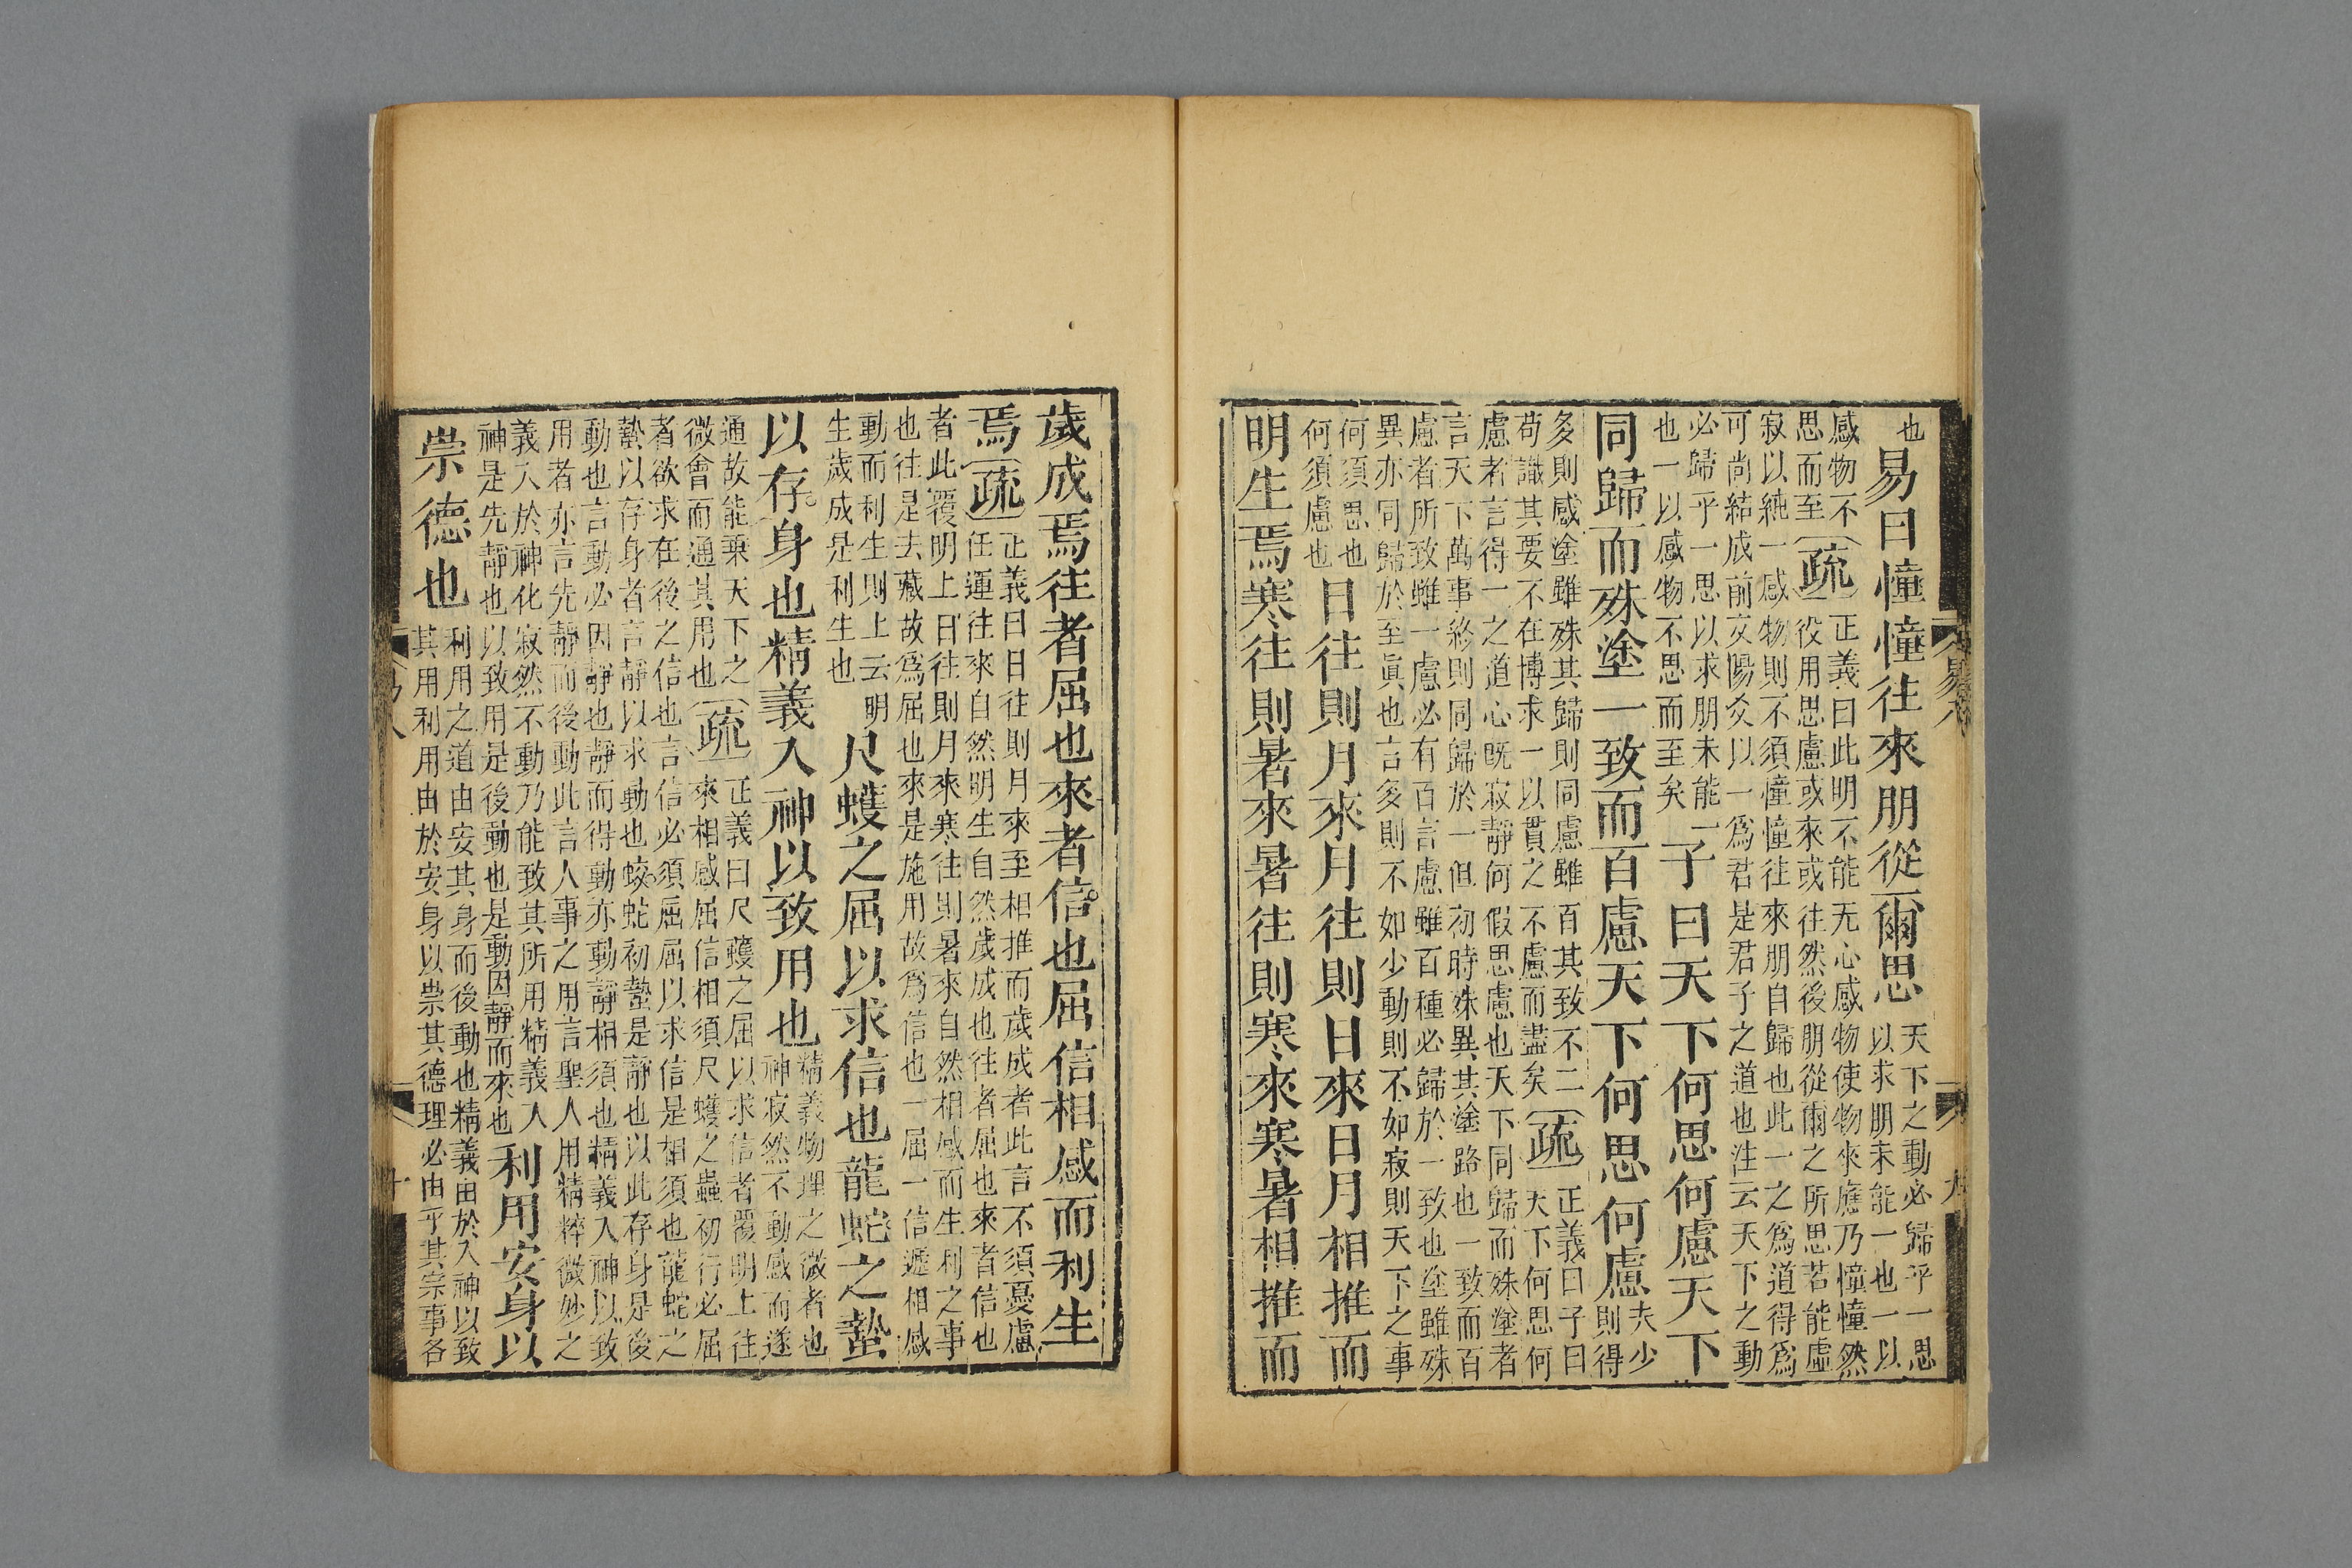 也易曰憧憧往來朋從爾思天下之動必歸乎一思
以求朋未能一也一以
感物不
思而至疏正義曰此明不能无心感物使物來應乃憧憧然
役用思慮或來或往然後朋從爾之所思若能虛
寂以純一感物則不須憧憧往來朋自歸也此一之爲道得爲
可尚結成前文陽爻以一爲君是君子之道也注云天下之動
必歸乎一思以求朋未能一
也一以感物不思而至矣子曰天下何思何慮天下
同歸而殊塗一致而百慮天下何思何慮夫少
則得
多則感塗雖殊其歸則同慮雖百其致不二
苟識其要不在博求一以貫之不慮而盡矣疏正義曰子曰
天下何思何
慮者言得一之道心既寂靜何假思慮也天下同歸而殊塗者
言天下萬事終則同歸於一但初時殊異其塗路也一致而百
慮者所致雖一慮必有百言慮雖百種必歸於一致也塗雖殊
異亦同歸於至眞也言多則不如少動則不如寂則天下之事
何須思也
何須慮也日往則月來月往則日來日月相推而
明生焉寒往則暑來暑往則寒來寒暑相推而
易八
九
歲成焉往者屈也來者信也屈信相感而利生
焉疏正義曰日往則月來至相推而歲成者此言不須憂慮
任運往來自然明生自然歲成也往者屈也來者信也
者此覆明上日往則月來寒往則暑來自然相感而生利之事
也往是去藏故爲屈也來是施用故爲信也一屈一信遞相感
動而利生則上云明
生歲成是利生也尺蠖之屈以求信也龍蛇之蟄
以存身也精義入神以致用也精義物理之微者也
神寂然不動感而遂
通故能乗天下之
微會而通其用也疏正義曰尺蠖之屈以求信者覆明上往
來相感屈信相須尺蠖之蟲初行必屈
者欲求在後之信也言信必須屈屈以求信是相須也龍蛇之
蟄以存身者言靜以求動也蛟蛇初蟄是靜也以此存身是後
動也言動必因靜也靜而得動亦動靜相須也精義入神以致
用者亦言先靜而後動此言人事之用言聖人用精粹微妙之
義入於神化寂然不動乃能致其所用精義入
神是先靜也以致用是後動也是動因靜而來也利用安身以
崇德也利用之道由安其身而後動也精義由於入神以致
其用利用由於安身以崇其德理必由乎其宗事各
十